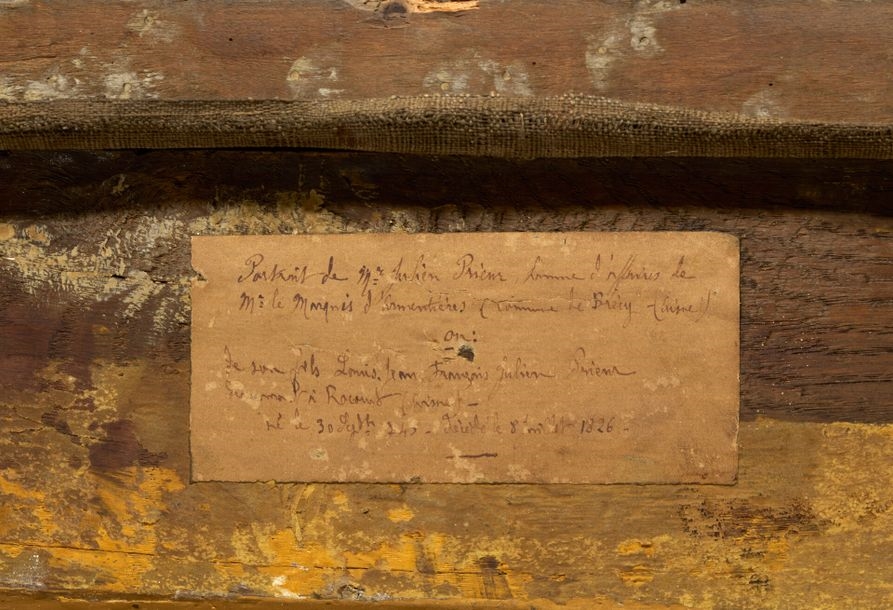 Portrait de Mr. Julien Prieur, homme d'affaires de
Mr. le Marquis d'Armentières (Commune de Brécy - (Aisne))
ou:
de son fils Louis, Jean, François, Julien Prieur
à Rocourt (Aisne) -
né le 30 Sept - Décédé le 8 1826 -